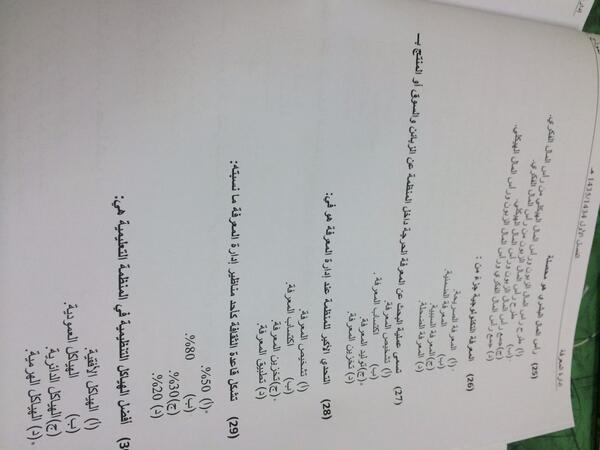 إدارة المعرفة
الفصل الأول 1435/1434 هـ
(25) رأس المال البشري هو محصلة
(أ) طرح رأس المال الزبون ورأس المال الهيكلي من رأس المال الفكري.
(ب) طرح رأس المال الزبون من رأس المال الفكري.
(ج) جمع رأس المال الزبون ورأس المال الهيكلي.
(د) جمع رأس المال الفكري ورأس المال الهيكلي.
(26) المعرفة التكنولوجية جزء من :
(أ) المعرفة الصريحة.
(ب) المعرفة الضمنية.
(ج) المعرفة السببية.
(د) المعرفة الضحلة.
(27) تسمى عملية البحث عن المعرفة الحرجة داخل المنظمة عن الزبائن والسوق أو المنتج بـ
(أ) تشخيص المعرفة.
(ب) اكتساب المعرفة.
(ج) توليد المعرفة.
(د) تخزين المعرفة.
(28) التحدي الأكبر للمنظمة عند إدارة المعرفة هو في:
(أ) تشخيص المعرفة.
(ب) اكتساب المعرفة.
(ج) تخزين المعرفة.
(د) تطبيق المعرفة.
(29) تشكل قاعدة التقنية كأحد مناظير إدارة المعرفة ما نسبته:
(أ) 50%.
(ب) 80%.
(ج) 30%.
(د) 20%.
أفضل الهياكل التنظيمية في المنظمة التعليمية هي:
(أ) الهياكل الأفقية.
(ب) الهياكل العمودية.
(ج) الهياكل الدائرية.
(د) الهياكل الهرمية.